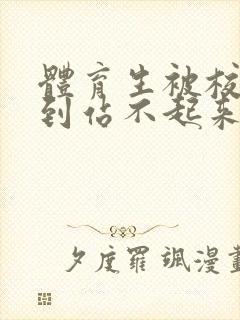 體育生被校
到佔不起來
夕度羅颯漫畫